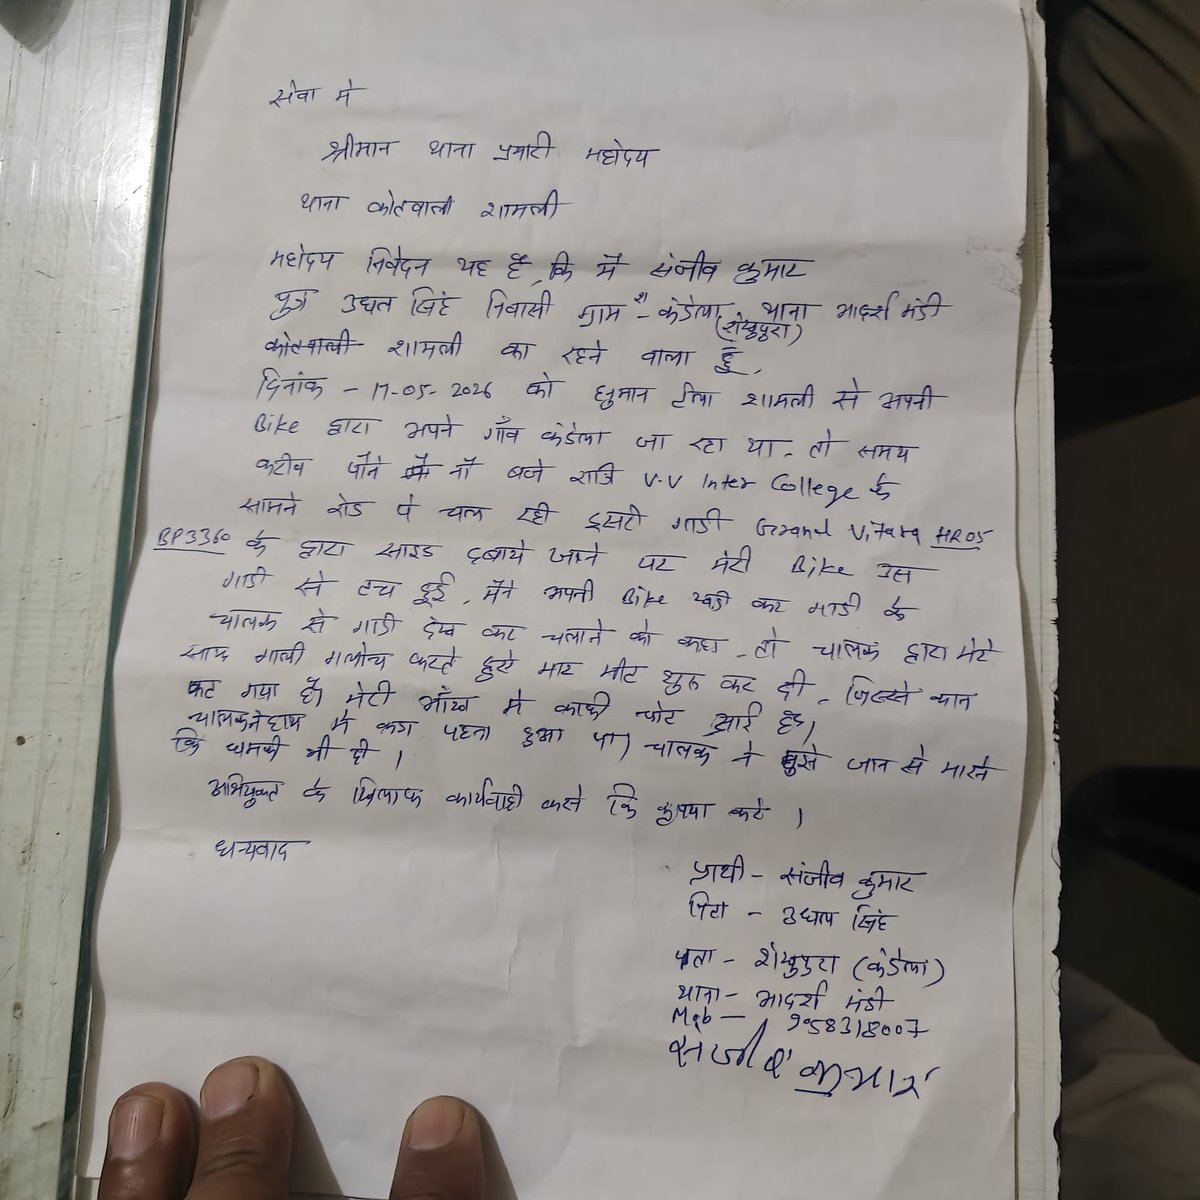 सेवा मे
श्रीमान थाना प्रभारी महोदय
थाना कोतवाली शामली
महोदय निवेदन यह है, कि मैं संजीव कुमार
पुत्र उधल सिंह निवासी ग्राम - कंडेला (शेखुपुरा) थाना आदर्श मंडी
कोतवाली शामली का रहने वाला हूँ,
दिनांक - 17-05-2026 को हनुमान टीला शामली से अपनी
Bike द्वारा अपने गाँव कंडेला जा रहा था - तो समय
करीब पौने नौ बजे रात्रि V.V Inter College के
सामने रोड पे चल रही दुसरी गाडी Grand Vitara HR05
BP3360 के द्वारा साइड दबाये जाने पर मेरी Bike उस
गाडी से टच हुई, मैने अपनी Bike खडी कर गाडी के
चालक से गाडी देख कर चलाने को कहा - तो चालक द्वारा मेरे
साथ गाली गलोच करते हुऐ मार पीट शुरु कर दी - जिससे कान
कट गया है। मेरी आँख मे काफी चोट आई है।
चालक ने हाथ मे कडा पहना हुआ था। चालक ने मुझे जान से मारने
कि धमकी भी दी ।
अभियुक्त के खिलाफ कार्यवाही करने कि कृपया करे ।
धन्यवाद
प्रार्थी - संजीव कुमार
पिता - उधल सिंह
पता - शेखुपुरा (कंडेला)
थाना - आदर्श मंडी
Mob - 9058318007
संजीव कुमार